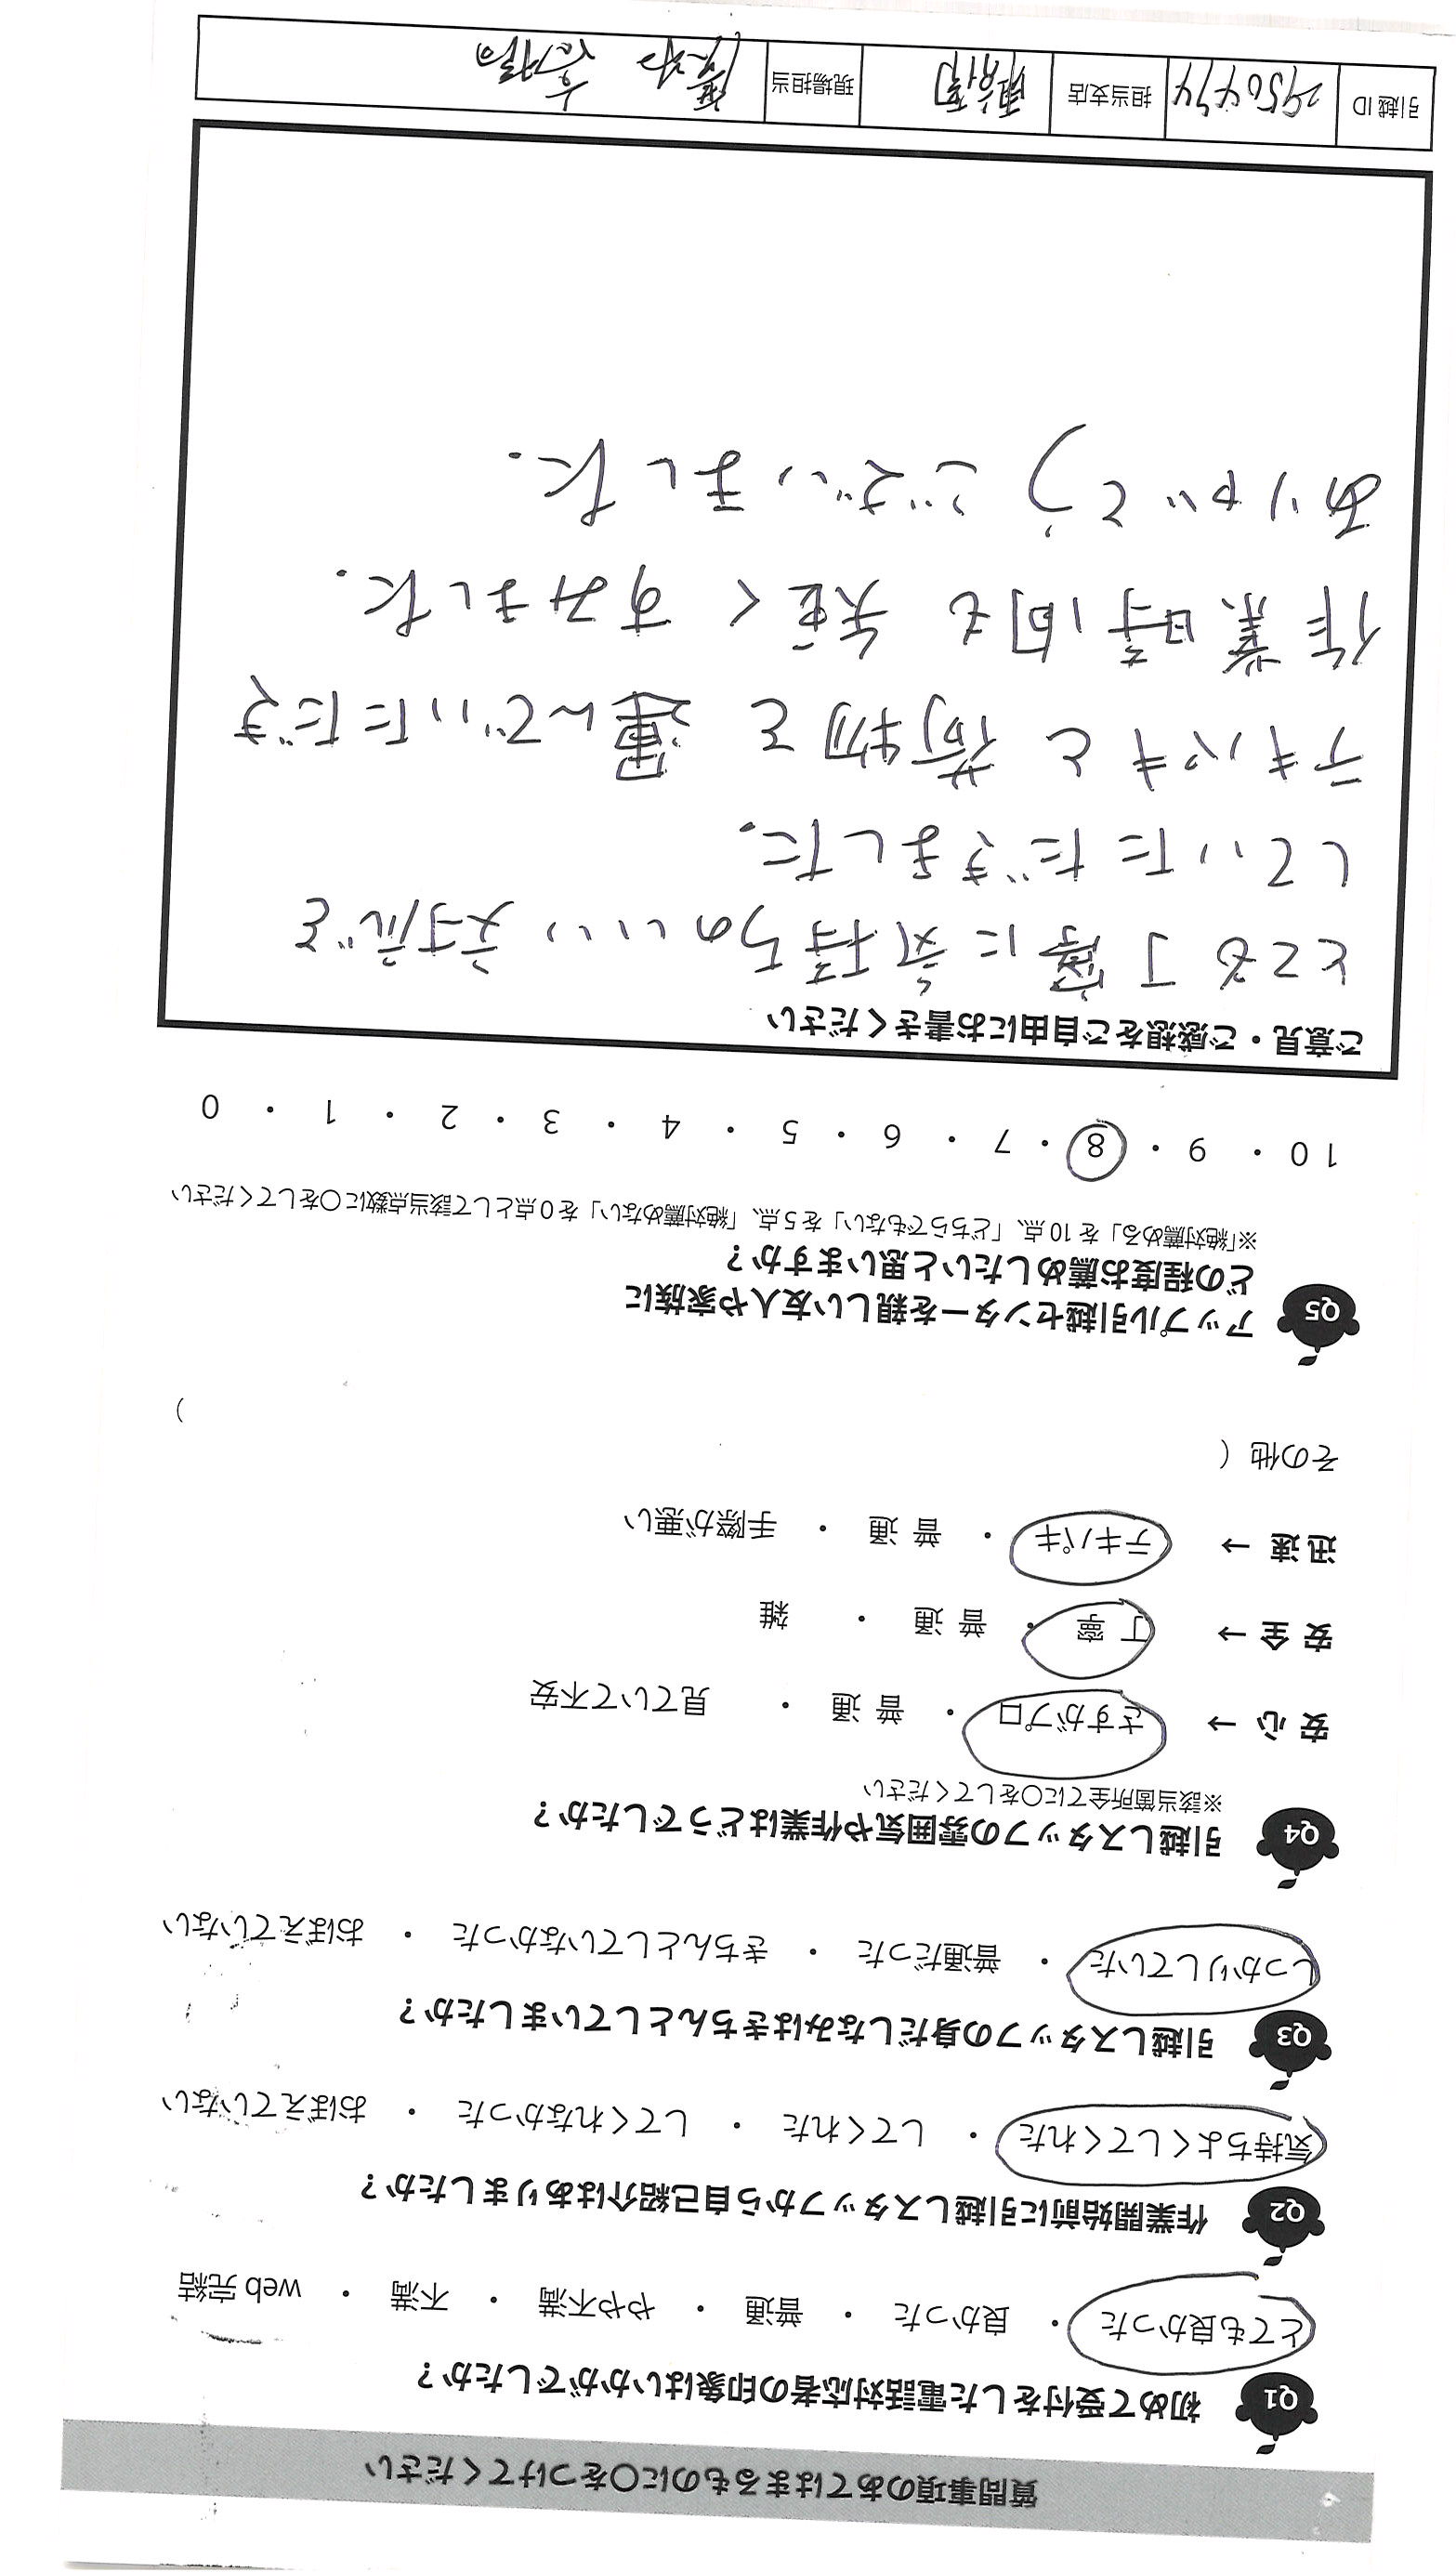 質問事項のあてはまるものに〇をつけてください
Q1 初めて受付をした電話対応者の印象はいかがでしたか？
とても良かった ・ 良かった ・ 普通 ・ やや不満 ・ 不満 ・ web 完結
Q2 作業開始前に引越しスタッフから自己紹介はありましたか？
気持ちよくしてくれた ・ してくれた ・ してくれなかった ・ おぼえていない
Q3 引越しスタッフの身だしなみはきちんとしていましたか？
しっかりしていた ・ 普通だった ・ きちんとしていなかった ・ おぼえていない
Q4 引越しスタッフの雰囲気や作業はどうでしたか？
※該当箇所全てに〇をしてください
安 心 → さすがプロ ・ 普 通 ・ 見ていて不安
安 全 → 丁 寧 ・ 普 通 ・ 雑
迅 速 → テキパキ ・ 普 通 ・ 手際が悪い
その他（ ）
Q5 アップル引越センターを親しい友人や家族に
どの程度お薦めしたいと思いますか？
※「絶対薦める」を 10 点、「どちらでもない」を 5 点、「絶対薦めない」を 0 点として該当点数に〇をしてください
10 ・ 9 ・ 8 ・ 7 ・ 6 ・ 5 ・ 4 ・ 3 ・ 2 ・ 1 ・ 0
ご意見・ご感想をご自由にお書きください
とても丁寧に気持ちのいい対応を
していただきました.
テキパキと荷物を運んでいただき
作業時間も短くすみました.
ありがとうございました.
引越 ID 2950474 担当支店 現場担当 高橋